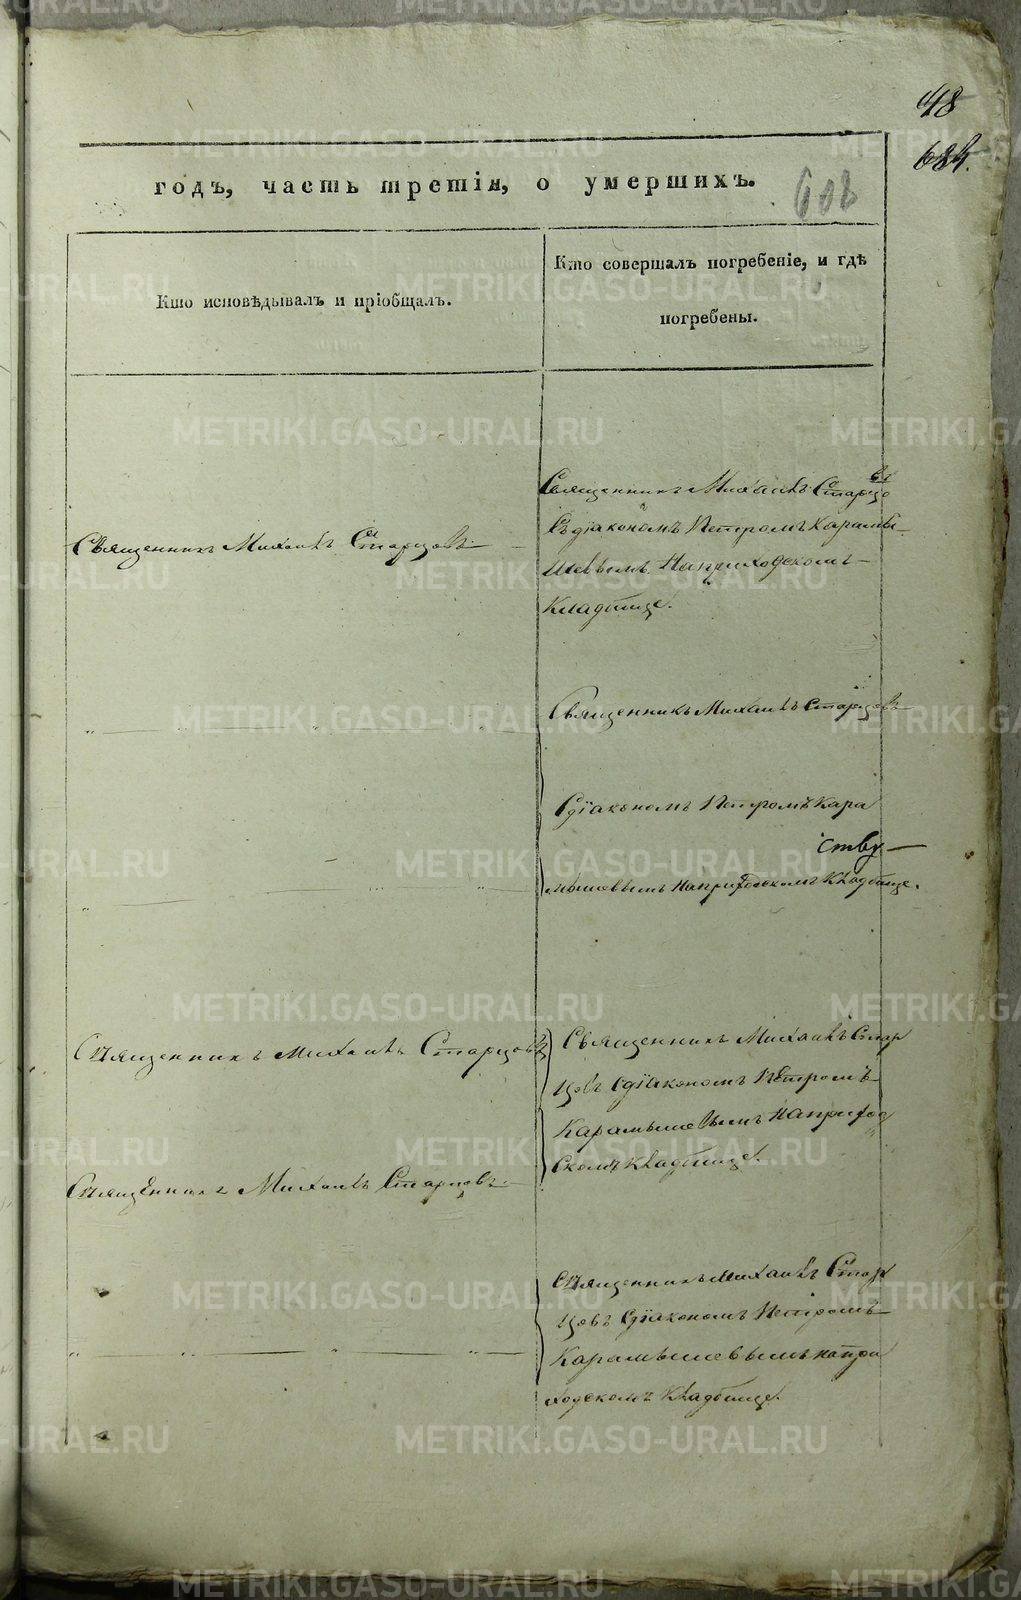 48
684.
608
годъ, часть третія, о умершихъ.
Кто исповѣдывалъ и пріобщалъ.
Кто совершалъ погребеніе, и гдѣ
погребены.
Священникъ Михаилъ Старцовъ
Священникъ Михаилъ Старцо
въ
Съдіакономъ Петромъ Карамы-
шевымъ Наприходскомъ
Кладбище.
Священникъ Михаилъ Старцовъ
Сдіакономъ Петромъ Кара
мышевымъ наприходскомъ Кладбище.
Священникъ Михаилъ Старцовъ
Священникъ Михаилъ Стар
цовъ Сдіакономъ Петромъ
Карамышевымъ Наприход
скомъ Кладбище.
Священникъ Михаилъ Старцовъ
Священникъ Михаилъ Стар
цовъ Сдіакономъ Петромъ
Карамышевымъ напри
ходскомъ Кладбище.
METRIKI.GASO-URAL.RU